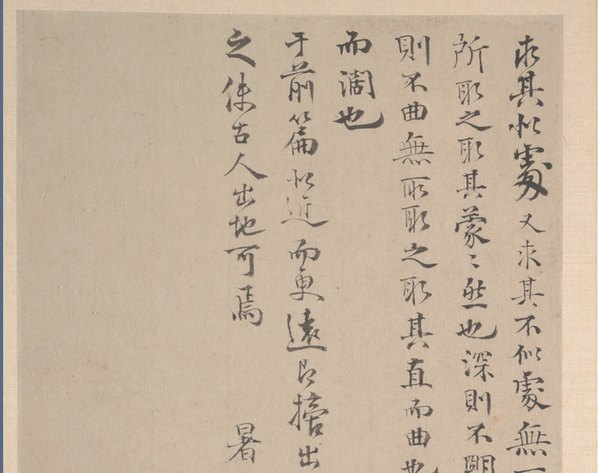 求其似處又求其不似處無
所取之取其蒙〻然也深則不明
則不曲無所取之取其直而曲也
而濶也
于前篇似近而更遠出
之古人出地可焉 暑